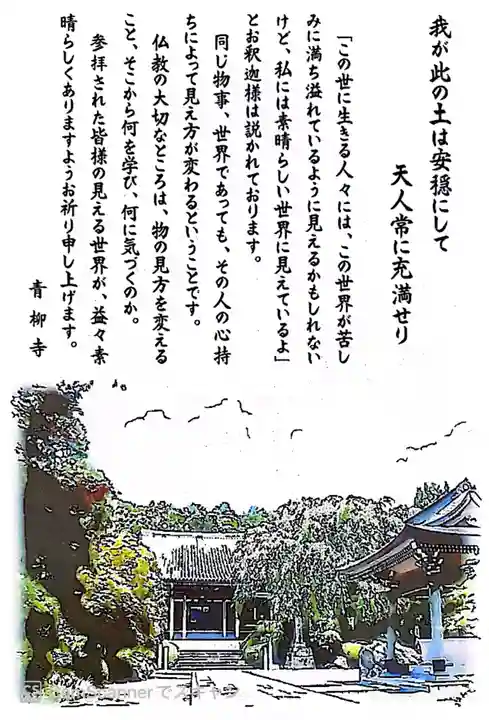 我が此の土は安穏にして
天人常に充満せり
「この世に生きる人々には、この世界が苦し
みに満ち溢れているように見えるかもしれない
けど、私には素晴らしい世界に見えているよ」
とお釈迦様は説かれております。
同じ物事、世界であっても、その人の心持
ちによって見え方が変わるということです。
仏教の大切なところは、物の見方を変える
こと、そこから何を学び、何に気づくのか。
参拝された皆様の見える世界が、益々素
晴らしくありますようお祈り申し上げます。
青柳寺
CamScannerでスキャン